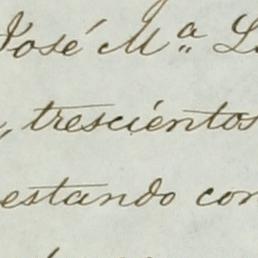 José Mª L
, trescientos
estando con